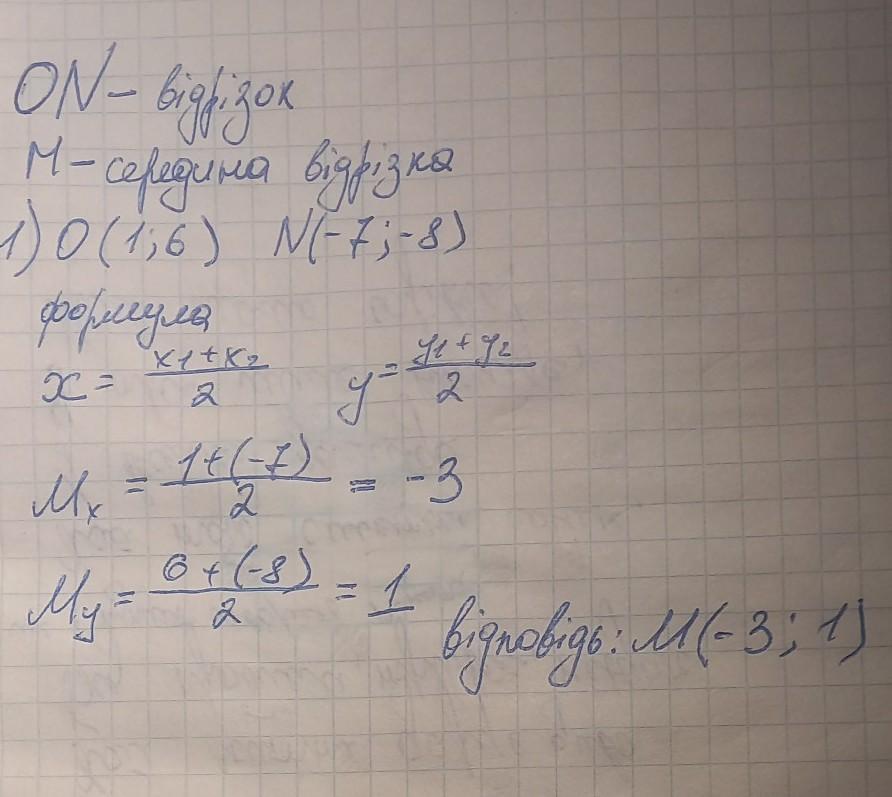 ON – відрізок
M – середина відрізка
1) O (1; 6) N(-7; -8)
формула
x = (x1 + x2)/2 y = (y1 + y2)/2
Mx = (1 + (-7))/2 = -3
My = (6 + (-8))/2 = 1
відповідь: M(-3; 1)